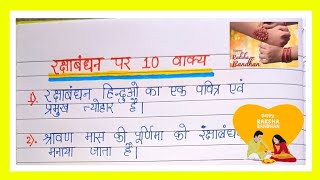 रक्षाबंधन पर 10 वाक्य
Happy
Rakhi
Bandhan
1). रक्षाबंधन हिन्दुओं का एक पवित्र एवं
प्रमुख त्योहार है।
2). श्रावण मास की पूर्णिमा को रक्षाबंधन
मनाया जाता है।
Happy
RAKSHA
BANDHAN